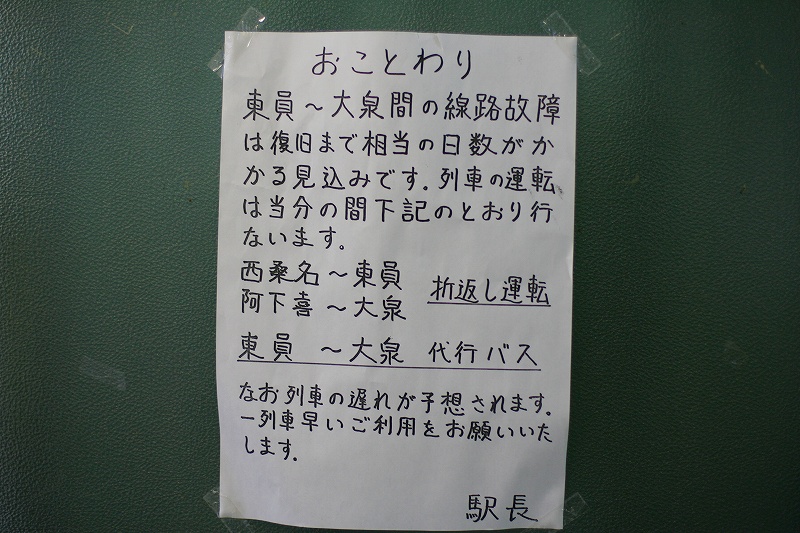 おことわり
東員～大泉間の線路故障
は復旧まで相当の日数がか
かる見込みです.列車の運転
は当分の間下記のとおり行
ないます。
西桑名～東員
阿下喜～大泉
折返し運転
東員　～大泉　代行バス
なお列車の遅れが予想されます.
一列車早いご利用をお願いいた
します.
駅長